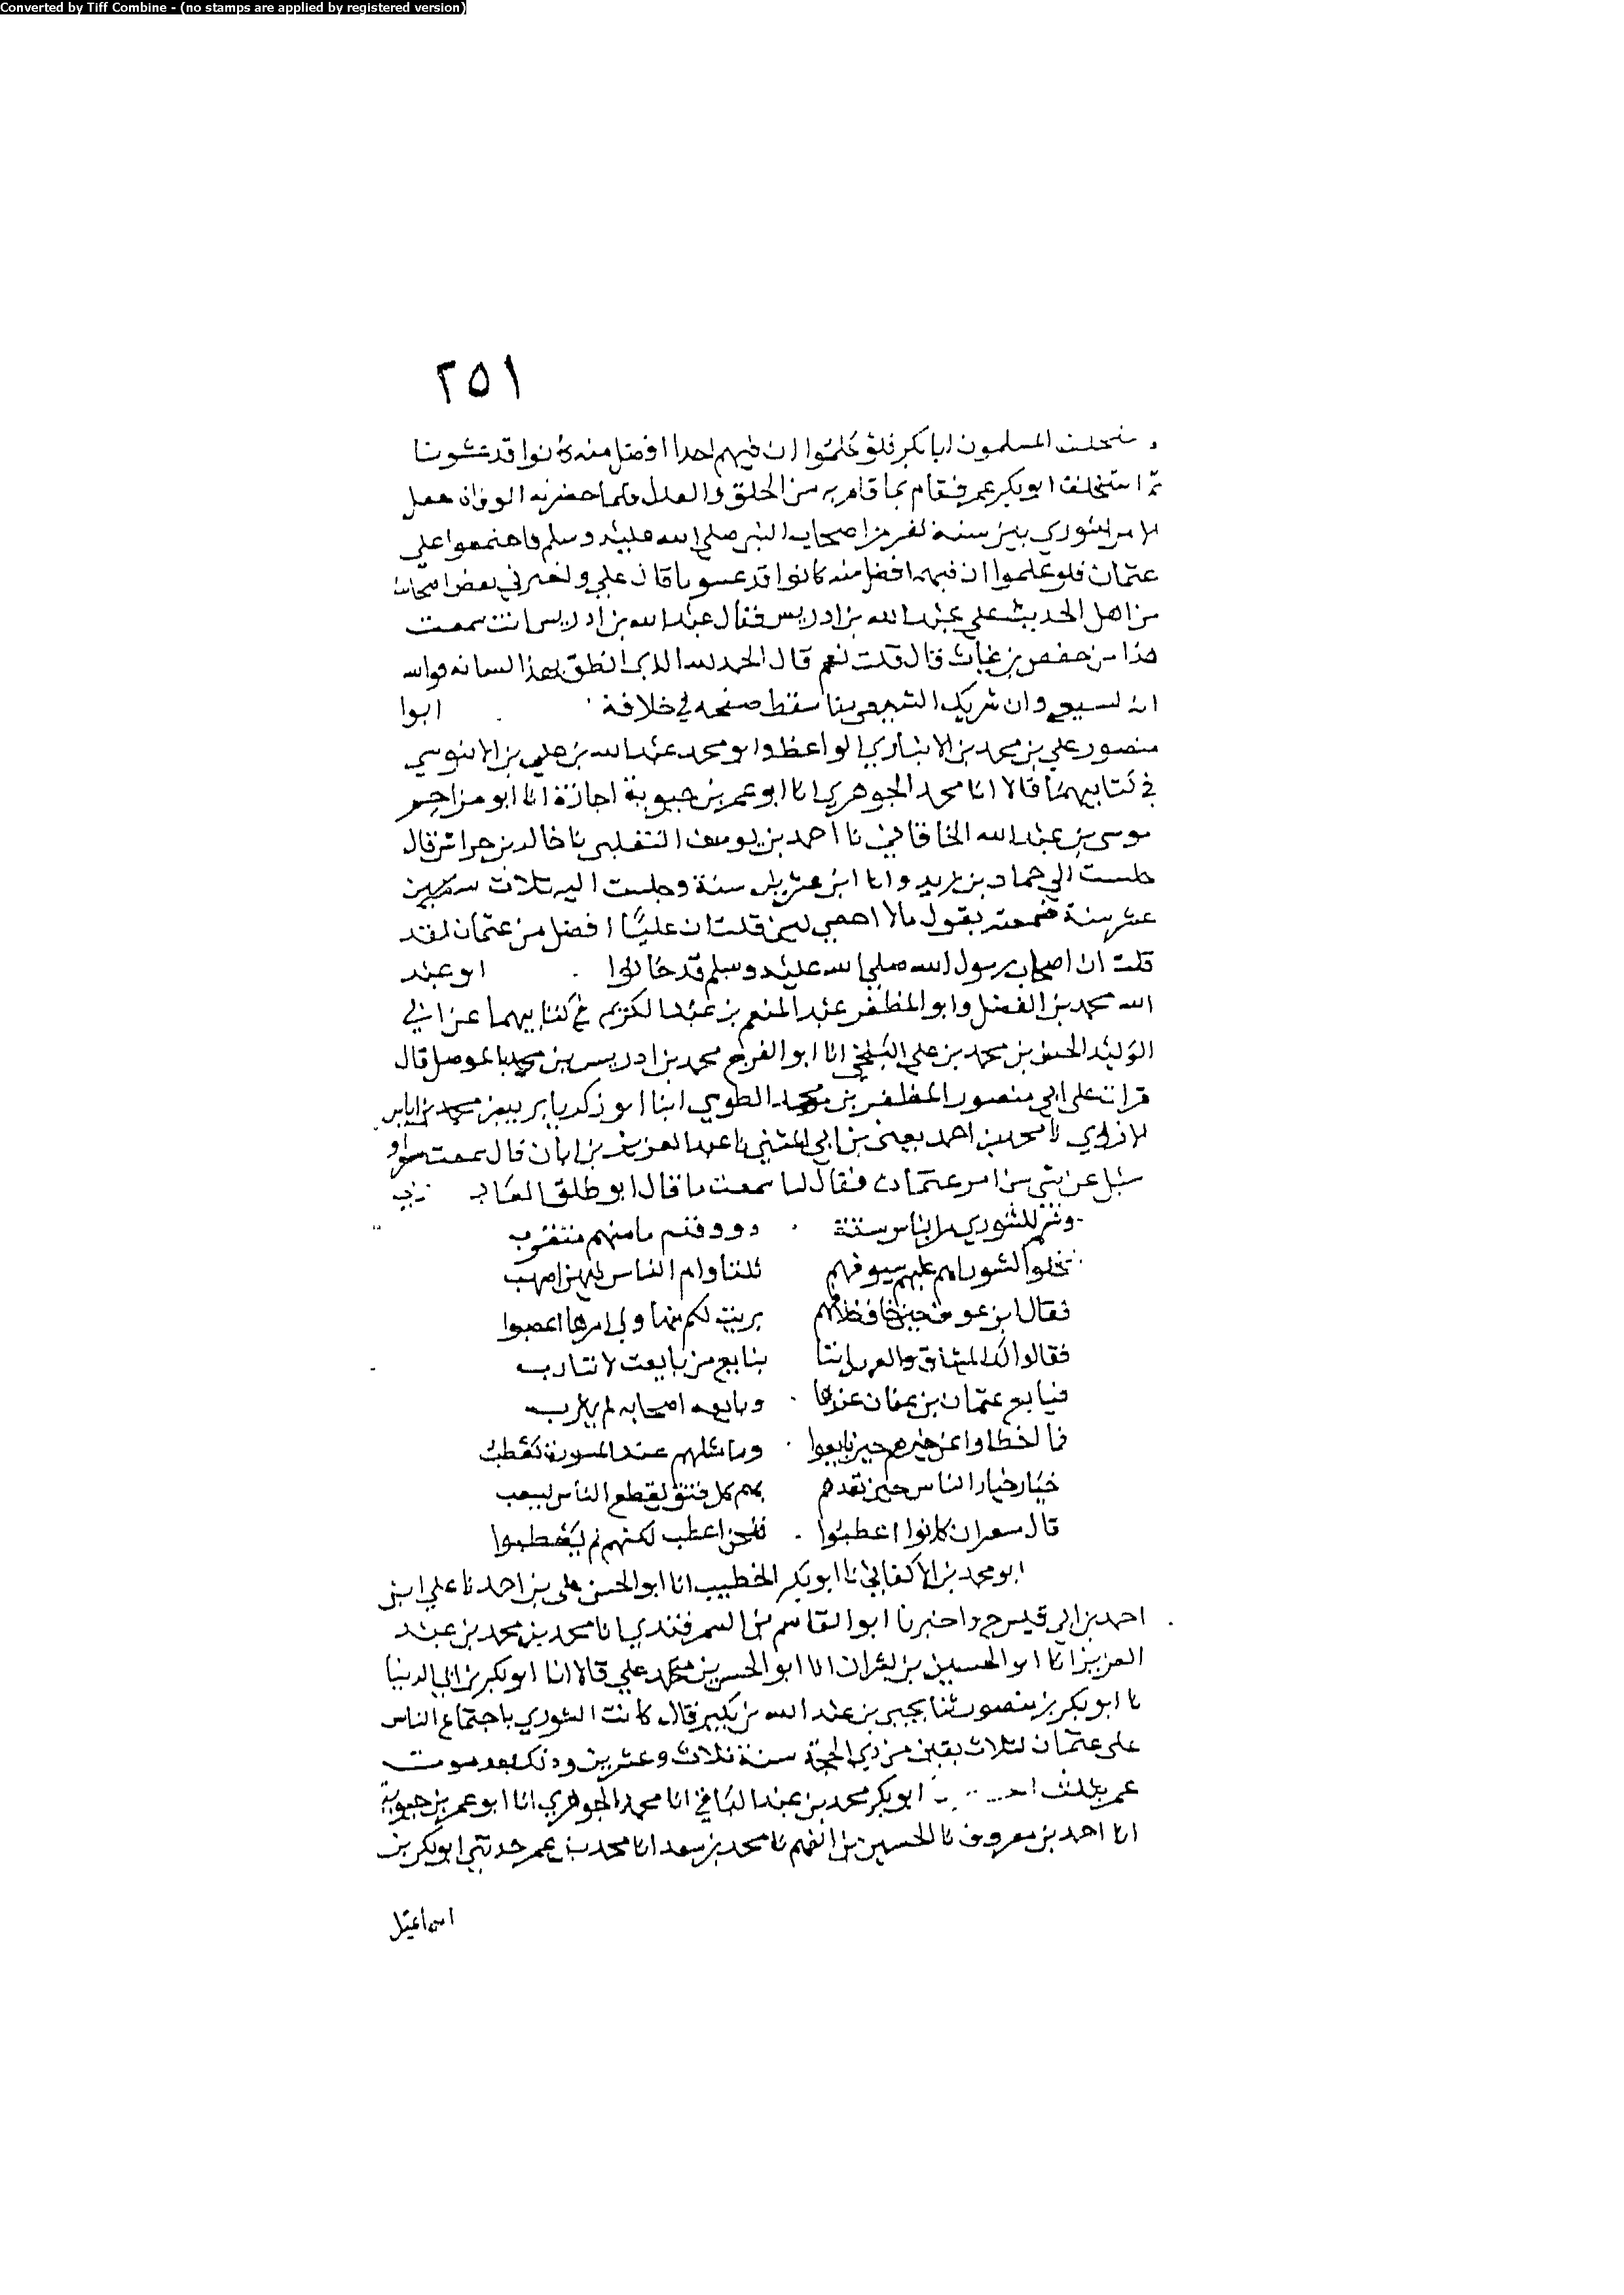 Converted by Tiff Combine - (no stamps are applied by registered version)
٢٥١
المسلمون ابا بكر فلو علموا ان فيهم احدا افضل منه كانوا قد غشونا
ثم استخلف ابو بكر عمر فقام بما قام به من الحق والعدل فلما حضرته الوفاة جعل
الامر شوري بين ستة نفر من اصحاب النبي صلى الله عليه وسلم فاجتمعوا على
عثمان فلو علموا ان فيهم افضل منه كانوا قد غشونا قال علي واخبرني بعض اصحابنا
من اهل الحديث على عبد الله بن ادريس فقال عبد الله بن ادريس انت سمعت
هذا من حفص بن غياث قال قلت نعم قال الحمد لله الذي انطق بهذا لسانه فوالله
انه لشيعي وان شريك لشيعي خلافة ابوا
منصور علي بن محمد بن الانباري الواعظ وابو محمد عبد الله بن علي بن الابنوسي
في كتابيهما قالا انا محمد الجوهري انا ابو عمر بن حيوية اجازة انا ابو مزاحم
موسى بن عبد الله الخاقاني نا احمد بن يوسف التغلبي نا خالد بن خراش قال
جلست الي حماد بن يزيد وانا ابن عشرين سنة وجلست اليه ثلاث
عشر سنة فسمعته يقول مالا احصي لين قلت ان عليا افضل من عثمان لقد
قلت ان اصحاب رسول الله صلى الله عليه وسلم قد خانوا ابو عبد
الله محمد بن الفضل وابو المظفر عبد المنعم بن عبد الكريم في كتابيهما عن ابي
الوليد الحسن بن محمد بن علي البلخي انا ابو الفرج محمد بن ادريس بن محمد بالموصل قال
قرات على ابي منصور المظفر بن محمد الطوسي ابنا ابو زكريا يزيد بن محمد بن اياس
الازدي نا محمد بن احمد يعني بن ابي المثني نا عبد العزيز بن ابان قال سمعت
سئل عن شي من امر عثمان فقال لنا سمعت ما قال ابو طلق العابد
للشوري من الناس ستة ما منهم
عليهم سيوفهم ثلثا وام الناس
فقال ابن عوف حين خاف بريت لكم منها
فقالوا لك الميثاق والعهد اننا نبايع من بايعت لا
فبايع عثمان بن عفان عندها وبايعه اصحابه لم
فما اخطاوا عن خيرهم حين بايعوا وما مثلهم عند المشورة
خيار خيار الناس حين تقدهم بهم كل فتق يقطع الناس
قال كانوا لكنهم لم
ابو محمد بن الاكفاني نا ابو بكر الخطيب انا ابو الحسن علي بن احمد نا علي ابن
احمد بن ابي قيس ح واخبرنا ابو القاسم بن السمرقندي انا محمد بن محمد بن عبد
العزيز انا ابو الحسين بن بشران انا ابو الحسين بن محمد علي قالا انا ابو بكر بن ابي الدنيا
نا ابو بكر بن منصور ثنا يحيى بن عبد الله بن بكير قال كانت الشوري باجتماع الناس
على عثمان لثلاث بقين من ذي الحجة سنة ثلاث وعشرين وذلك بعد موت
عمر بثلث ابو بكر محمد بن عبد الباقي انا محمد الجوهري انا ابو عمر بن حيوية
انا احمد بن معروف نا الحسين بن الفهم نا محمد بن سعد انا محمد بن عمر حدثني ابو بكر بن
اسماعيل